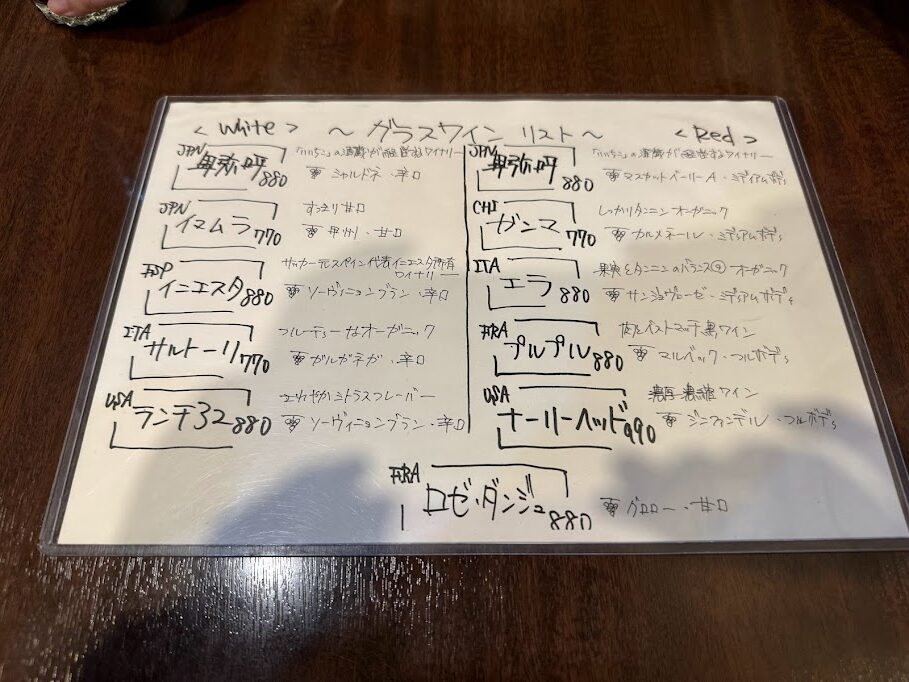 <White> ～ ガラスワイン リスト～ <Red>
JPN
卑弥呼 880
「いいちこ」の酒蔵が経営するワイナリー
シャルドネ・辛口
JPN
イマムラ 770
すっきり甘口
甲州・甘口
ESP
イニエスタ 880
サッカー元スペイン代表イニエスタ所有
ワイナリー
ソーヴィニョンブラン・辛口
ITA
サルトーリ 770
フルーティーなオーガニック
ガルガネガ・辛口
USA
ランチ32 880
さわやかシトラスフレーバー
ソーヴィニョンブラン・辛口
JPN
卑弥呼 880
「いいちこ」の酒蔵が経営するワイナリー
マスカットベーリーA・ミディアムボディ
CHI
ガンマ 770
しっかりタンニン オーガニック
カルメネール・ミディアムボディ
ITA
エラ 880
果実とタンニンのバランス◎ オーガニック
サンジョヴェーゼ・ミディアムボディ
FRA
プルプル 880
肉とベストマッチ 黒ワイン
マルベック・フルボディ
USA
ナーリーヘッド 990
濃厚 濃縮 ワイン
ジンファンデル・フルボディ
FRA
ロゼ・ダンジュ 880
グロロー・甘口